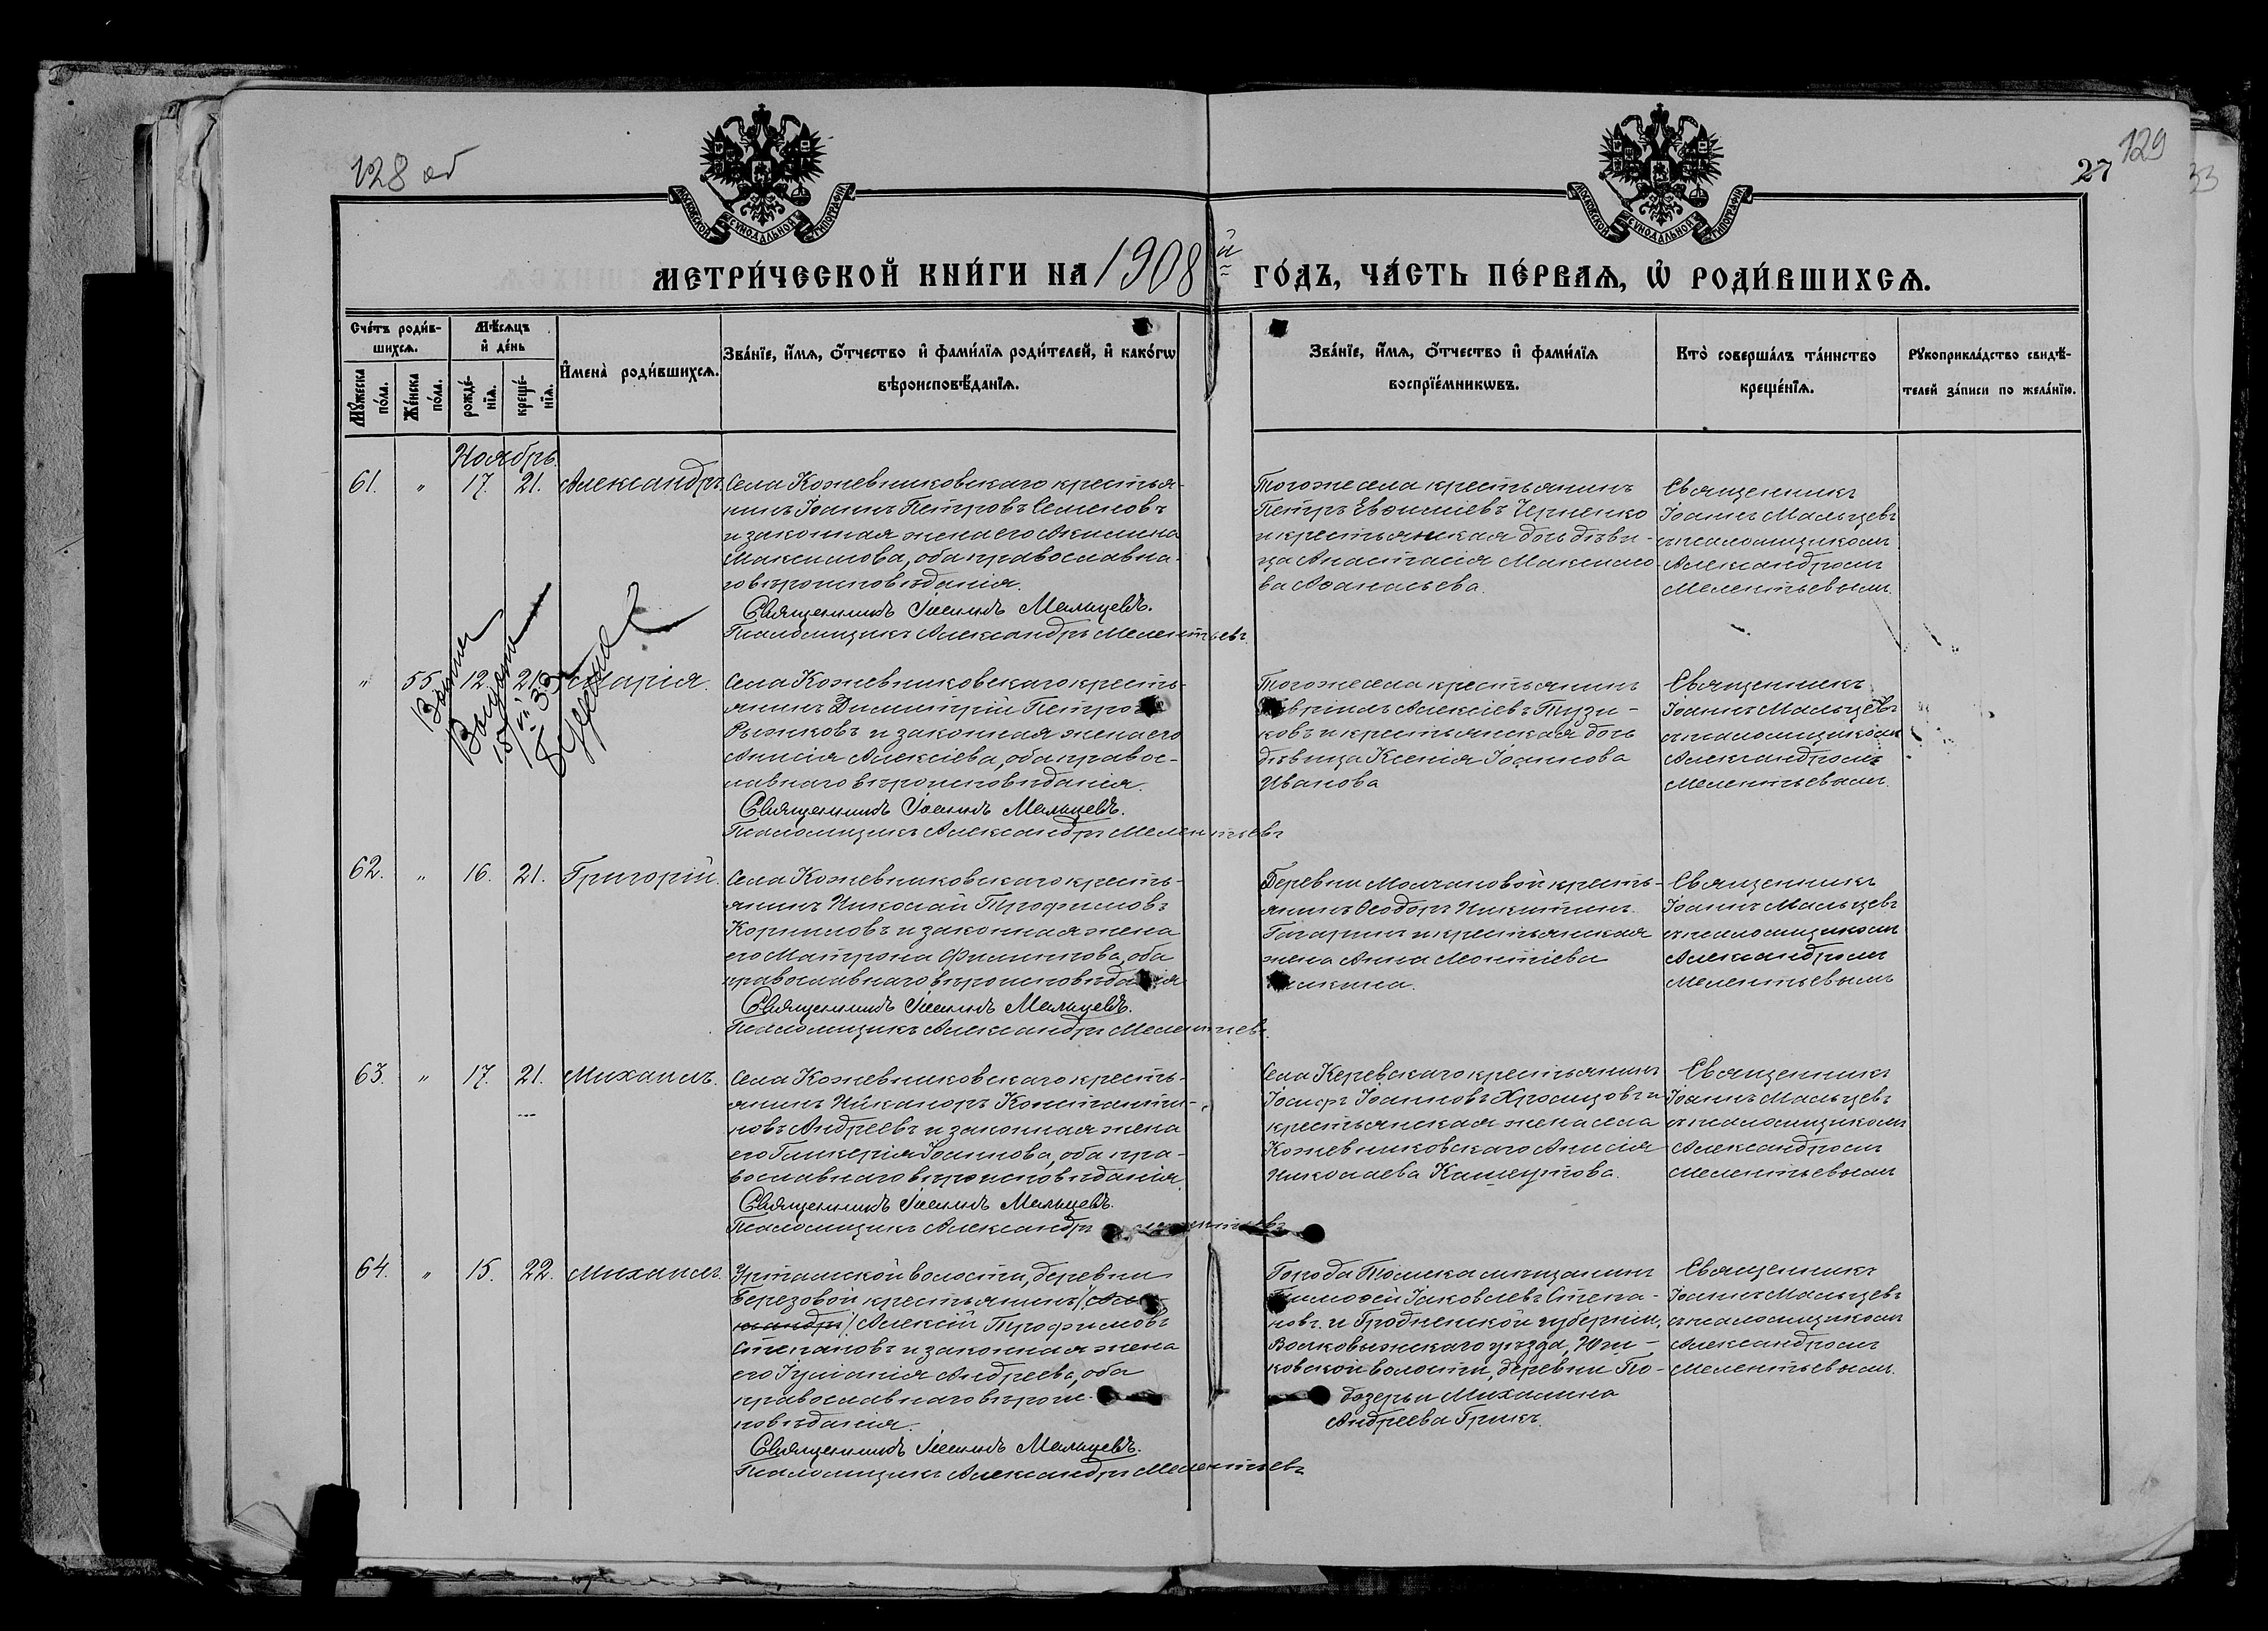 128 об
129
27
33
МОСКОВСКОЙ СУНОДАЛЬНОЙ ТИПОГРАФІИ
МОСКОВСКОЙ СУНОДАЛЬНОЙ ТИПОГРАФІИ
МЕТРИ́ЧЕСКОЙ КНИ́ГИ НА 1908 й ГО́ДЪ, ЧА́СТЬ ПЕ́РВАѦ, Ѡ҆ РОДИ́ВШИХСѦ.
Сче́тъ роди́в-
шихсѧ.
Мꙋ́жеска по́ла.
Же́нска по́ла.
Мѣ́сѧцъ
и҆ де́нь
рожде́-
нїѧ.
креще́-
нїѧ.
И҆мена̀ роди́вшихсѧ.
Зва́нїе, и҆́мѧ, ѻ҆́тчество и҆ фами́лїѧ роди́телей, и҆ како́гѡ
вѣроисповѣ́данїѧ.
Зва́нїе, и҆́мѧ, ѻ҆́тчество и҆ фами́лїѧ
воспрїе́мникѡвъ.
Кто̀ соверша́лъ та́инство
креще́нїѧ.
Рꙋкоприкла́дство свидѣ́-
телей за́писи по жела́нїю.
Ноябрь.
61. " 17. 21. Александръ
Села Кожевниковскаго крестья-
нинъ Іоаннъ Петровъ Семеновъ
и законная жена его Акилина
Максимова, оба православна-
го вѣроисповѣданія.
Священникъ Іоаннъ Мальцевъ.
Псаломщикъ Александръ Мелентьевъ
Тогоже села крестьянинъ
Петръ Евѳиміевъ Черненко
и крестьянская дочь дѣви-
ца Анастасія Максимо-
ва Аѳанасьева.
Священникъ
Іоаннъ Мальцевъ
съ псаломщикомъ
Александромъ
Мелентьевымъ.
" 55 12 21. Марія.
Выдана
15/VI 33
Села Кожевниковскаго кресть-
янинъ Димитрій Петро
Рыжковъ и законная жена его
Анисія Алексіева, оба правос-
лавнаго вѣроисповѣданія.
Священникъ Іоаннъ Мальцевъ.
Псаломщикъ Александръ Мелентьевъ
Тогоже села крестьянинъ
Гавріилъ Алексіевъ Тузи-
ковъ и крестьянская дочь
дѣвица Ксенія Іоаннова
Иванова
Священникъ
Іоаннъ Мальцевъ
съ псаломщикомъ
Александромъ
Мелентьевымъ.
62. " 16. 21. Григорій.
Села Кожевниковскаго кресть-
янинъ Николай Трофимовъ
Корниловъ и законная жена
его Матрона Филиппова, оба
православнаго вѣроисповѣданія
Священникъ Іоаннъ Мальцевъ.
Псаломщикъ Александръ Мелентьевъ.
Деревни Молчановой кресть-
янинъ Ѳеодоръ Никитинъ
Гагаринъ и крестьянская
жена Анна Монтіева
Священникъ
Іоаннъ Мальцевъ
съ псаломщикомъ
Александромъ
Мелентьевымъ
63. " 17. 21. Михаилъ.
Села Кожевниковскаго кресть-
янинъ Никаноръ Константи-
новъ Андреевъ и законная жена
его Гликерія Іоаннова, оба пра-
вославнаго вѣроисповѣданія.
Священникъ Іоаннъ Мальцевъ.
Псаломщикъ Александръ Мелентьевъ
Села Керевскаго крестьянинъ
Іосифъ Іоанновъ Храмцовъ и
крестьянская жена села
Кожевниковскаго Анисія
Николаева Кашеутова.
Священникъ
Іоаннъ Мальцевъ
съ псаломщикомъ
Александромъ
Мелентьевымъ
64. " 15. 22. Михаилъ.
Уртамской волости, деревни
Березовой крестьянинъ /Алек
сандръ/ Алексій Трофимовъ
Степановъ и законная жена
его Іуліанія Андреева, оба
православнаго вѣроис
повѣданія.
Священникъ Іоаннъ Мальцевъ.
Псаломщикъ Александръ Мелентьевъ
Города Томска мѣщанинъ
Тимоѳей Іаковлевъ Степа-
новъ и Гродненской губерніи,
Волковыжскаго уѣзда,
ковской волости, деревни По-
дозерьи Михалина
Андреева Гринъ.
Священникъ
Іоаннъ Мальцевъ
съ псаломщикомъ
Александромъ
Мелентьевымъ.